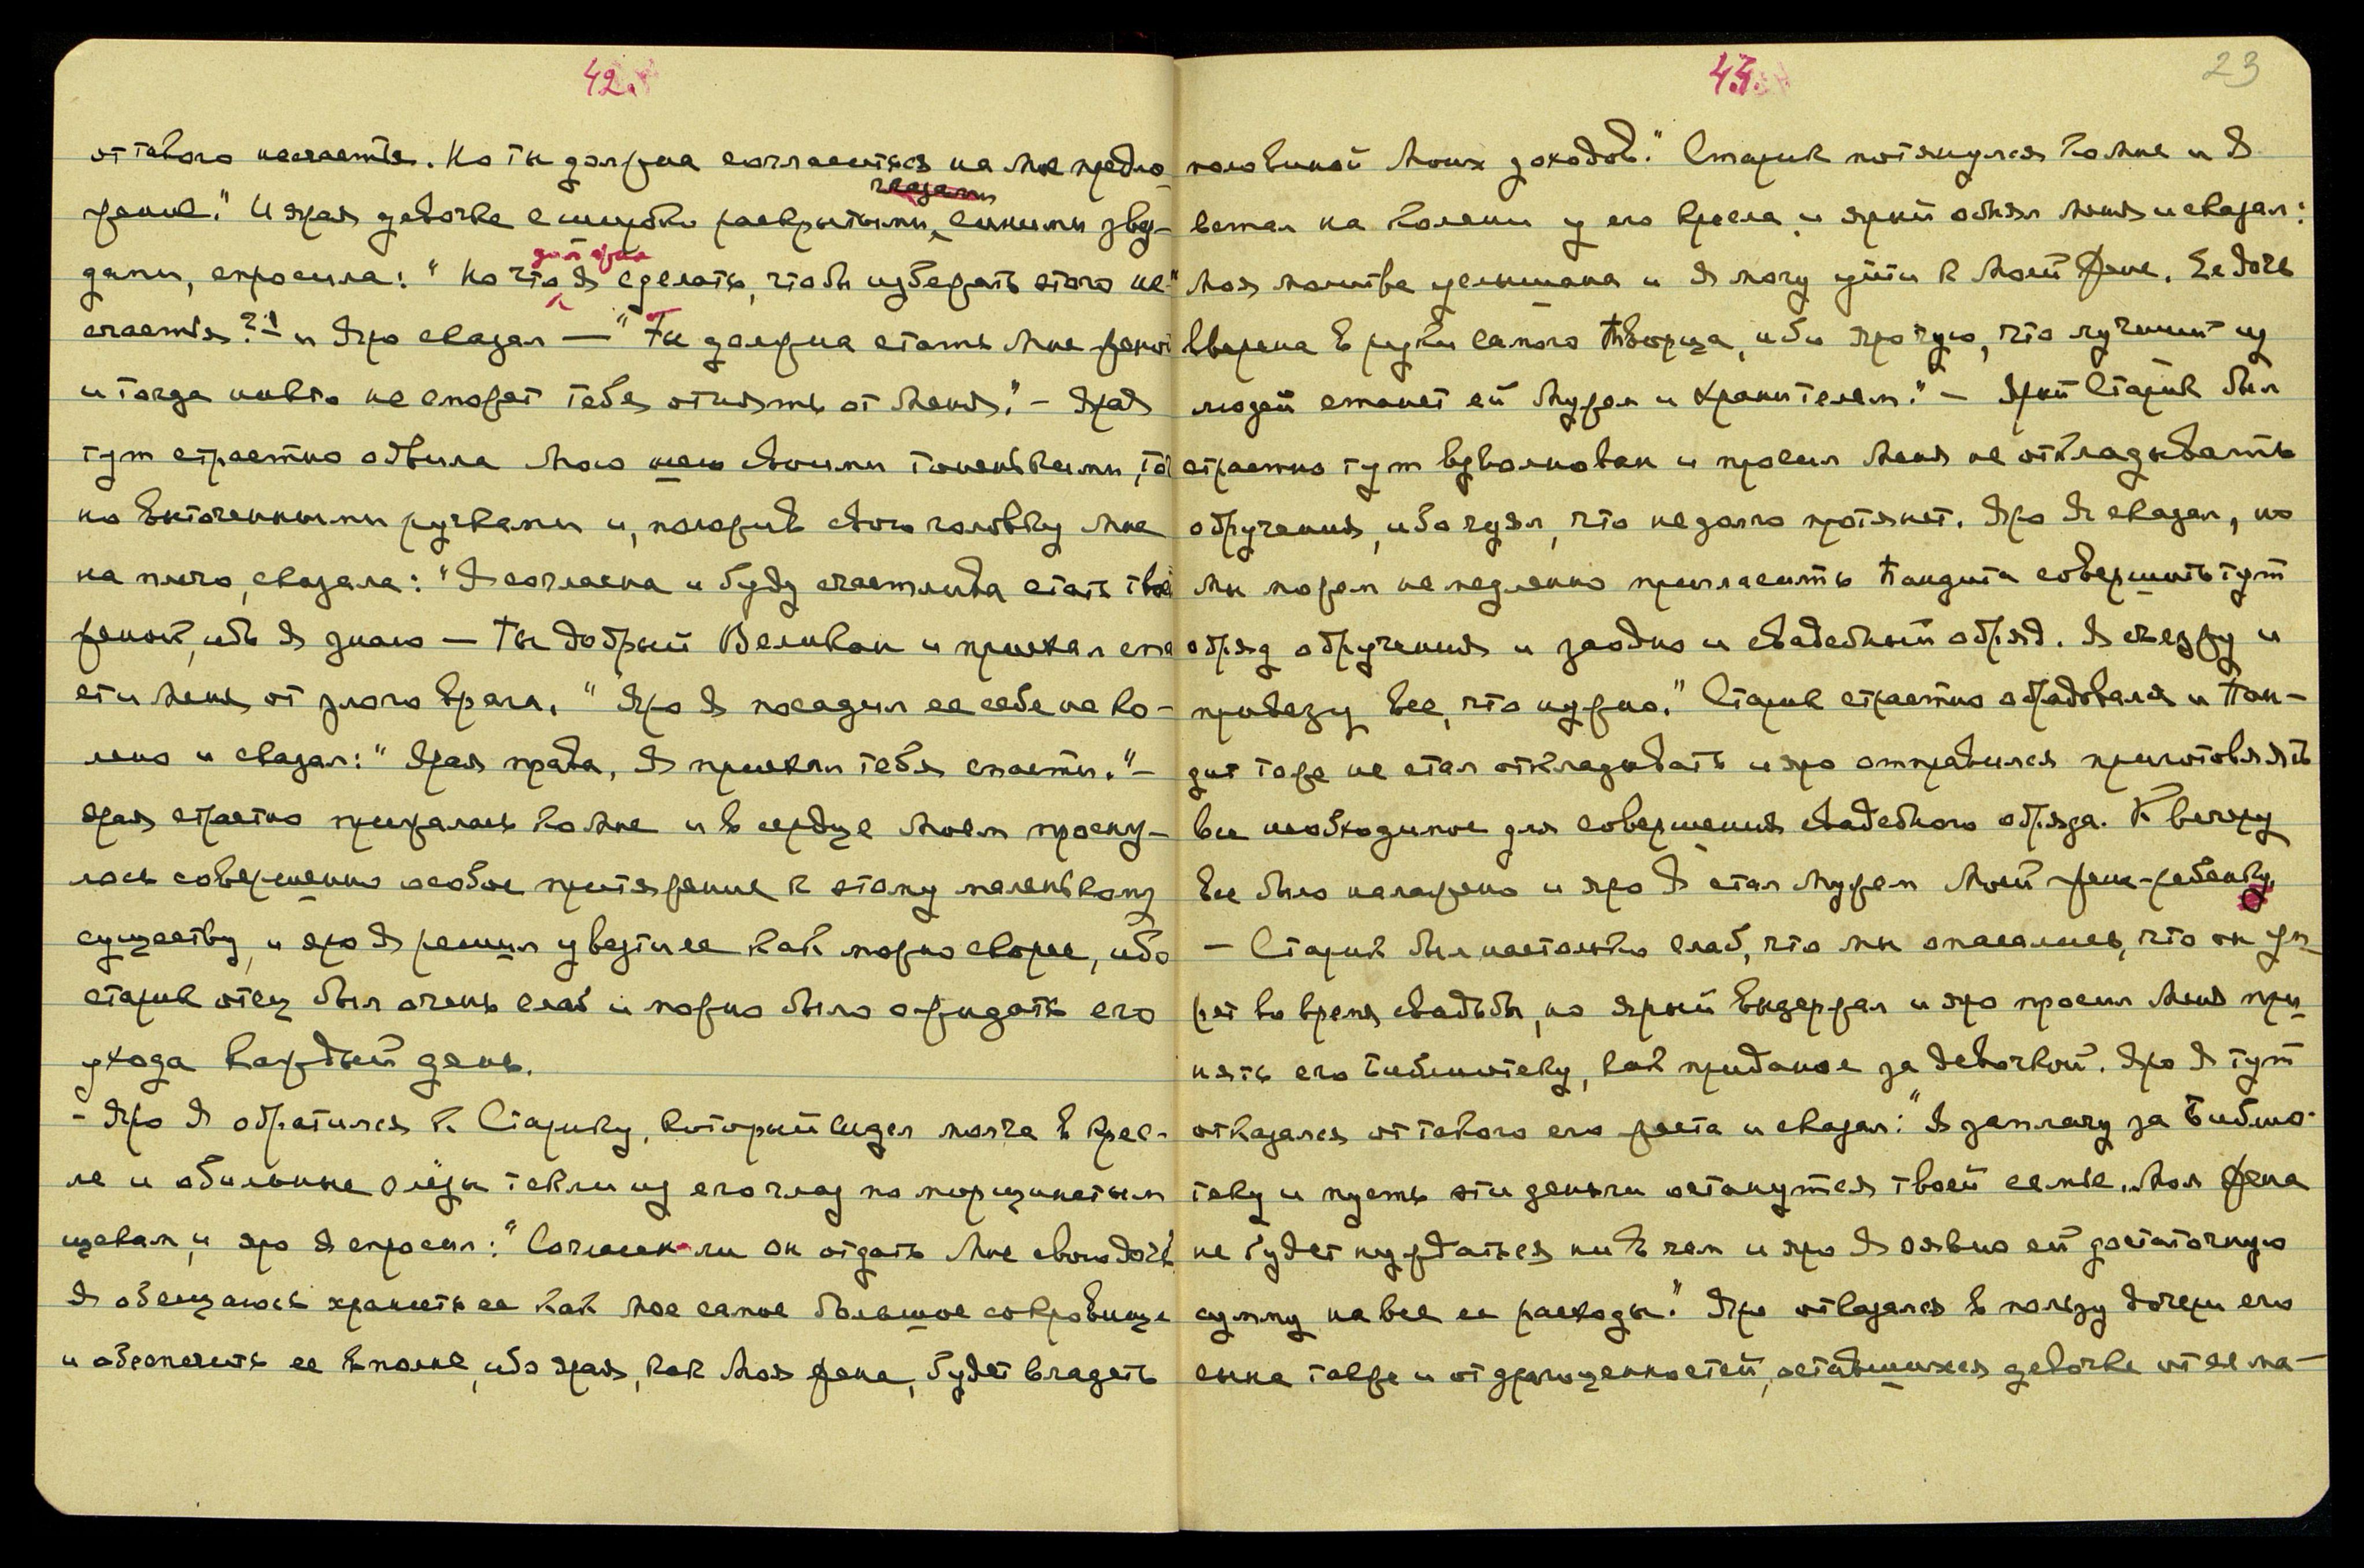 42.
от такого несчастья. Но ты должна согласиться на мое предло-
глазами
жение." И ярая девочка с широко раскрытыми, синими звез-
должна
дами, спросила: "Но что я сделать, чтобы избежать этого не-
счастья?!" – и Яро сказал — "Ты должна стать Мне женой
и тогда никто не сможет тебя отнять от Меня." – Ярая
тут страстно обвила Мою шею своими тоненькими,
но выточенными ручками и, положив свою головку Мне
на плечо, сказала: "Я согласна и буду счастлива стать твоей
женой, ибо я знаю — Ты добрый Великан и приехал спа
сти меня от злого врага." Яро Я посадил ее себе на ко-
лено и сказал: "Ярая права, Я приехал тебя спасти." –
Ярая страстно прижалась ко Мне и в сердце Моем просну-
лось совершенно особое притяжение к этому маленькому
существу, и яро Я решил увезти ее как можно скорее, ибо
старик отец был очень слаб и можно было ожидать его
ухода каждый день.
- Яро Я обратился к Старику, который сидел молча в крес-
ле и обильные слёзы текли из его глаз по морщинистым
щекам, и яро Я спросил: "Согласен ли он отдать Мне свою дочь
Я обещаюсь хранить ее как Мое самое большое сокровище
и обеспечить ее вполне, ибо ярая, как Моя жена, будет владеть
43.
23
половиной Моих доходов." Старик потянулся ко Мне и Я
встал на колени у его кресла, и ярый обнял Меня и сказал:
"Моя молитва услышана и Я могу уйти к Моей Жене. Ее дочь
вверена в руки самого Творца, ибо яро чую, что лучший из
людей станет ей Мужем и Хранителем." – Ярый Старик был
страстно тут взволнован и просил Меня не откладывать
обручения, ибо чуял, что не долго протянет. Яро Я сказал, но
мы можем немедленно пригласить Пандита совершить тут
обряд обручения и заодно и свадебный обряд. Я съезжу и
привезу все, что нужно." Старик страстно обрадовался и Пан-
дит тоже не стал откладывать и яро отправился приготовлять
все необходимое для совершения свадебного обряда. К вечеру
все было налажено и яро Я стал Мужем Моей жене-ребёнку.
– Старик был настолько слаб, что мы опасались, что он ум-
рет во время свадьбы, но ярый выдержал и яро просил Меня при
нять его Библиотеку, как приданое за девочкой. Яро Я тут
отказался от такого его жеста и сказал: "Я заплачу за Библио-
теку и пусть эти деньги останутся твоей семье. Моя Жена
не будет нуждаться ни в чем и яро Я оявлю ей достаточную
сумму на все ее расходы." Яро отказался в пользу дочери его
сына также и от драгоценностей, оставшихся девочке от ее ма-